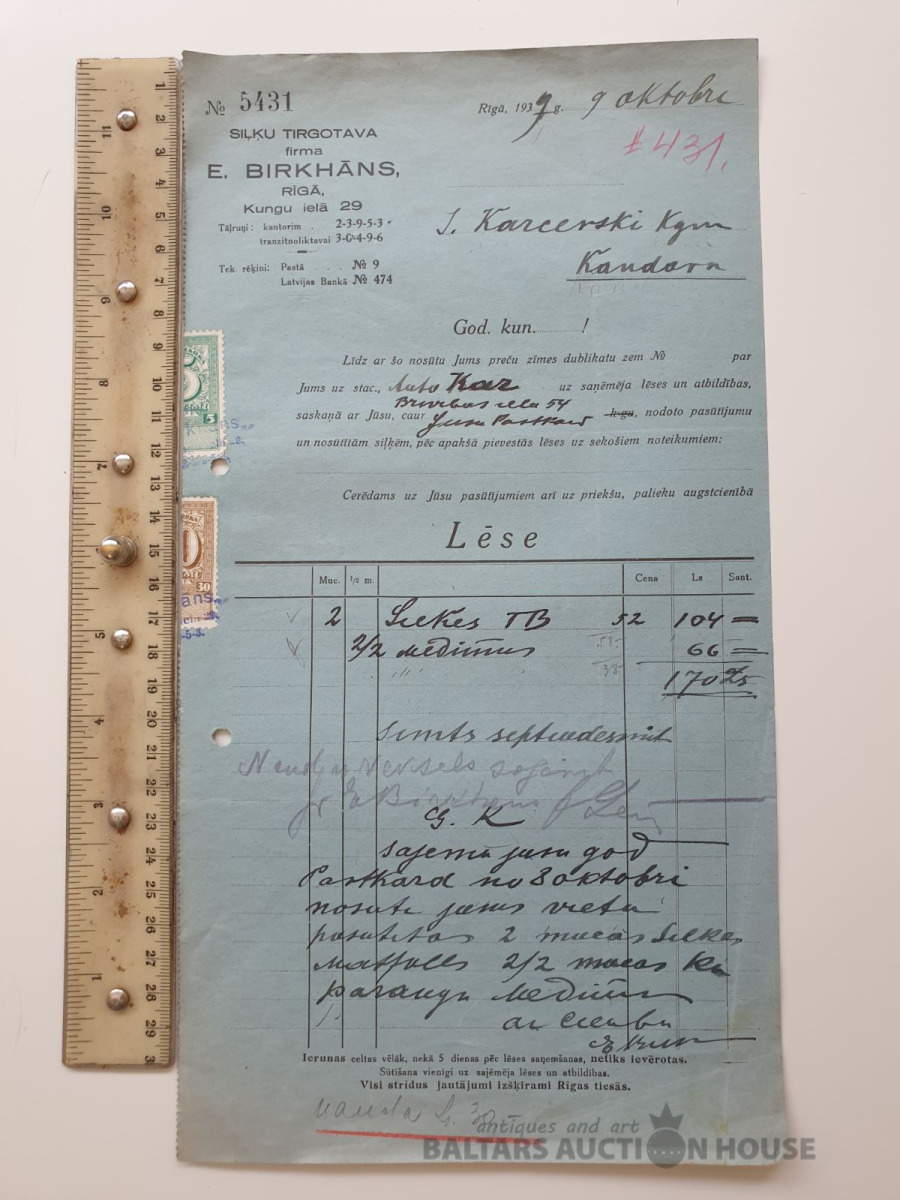 № 5431
Rīgā, 1939 g. 9 oktobri
SIĻĶU TIRGOTAVA
firma
E. BIRKHĀNS,
RĪGĀ,
Kungu ielā 29
Tāļruņi: kantorim . 2-3-9-5-3
tranzitnoliktavai 3-0-4-9-6
Tek. rēķini: Pastā . . . № 9
Latvijas Bankā № 474
# 431.
J. Karcevski Kgm
Kandavā
God. kun. !
Līdz ar šo nosūtu Jums preču zīmes dublikatu zem № par
Jums uz stac., Auto Kaz uz saņēmēja lēses un atbildības,
Brīvības iela 54
saskaņā ar Jūsu, caur Jusu Postkard k-gu, nodoto pasūtījumu
un nosūtītām siļķēm, pēc apakšā pievestās lēses uz sekošiem noteikumiem:
Cerēdams uz Jūsu pasūtījumiem arī uz priekšu, palieku augstcienībā
Lēse
Muc. 1/2 m. Cena Ls Sant.
2 Silkes TB 52 104 =
2/2 Medimus 58- 66 =
" 38- 170 Ls
Simts septiņdesmit
Vekselis
G. K
Sajemu jusu god
Postkard no 8 oktobri
nosutu jums vieta
pasutitas 2 mucas Silkes
Matfulls 2/2 mucas Ka
paraugu Medium
ar cieņu
Ierunas celtas vēlāk, nekā 5 dienas pēc lēses saņemšanas, netiks ievērotas.
Sūtīšana vienīgi uz sajēmēja lēses un atbildības.
Visi strīdus jautājumi izšķirami Rīgas tiesās.
nauda
antiques and art
BALTARS AUCTION HOUSE